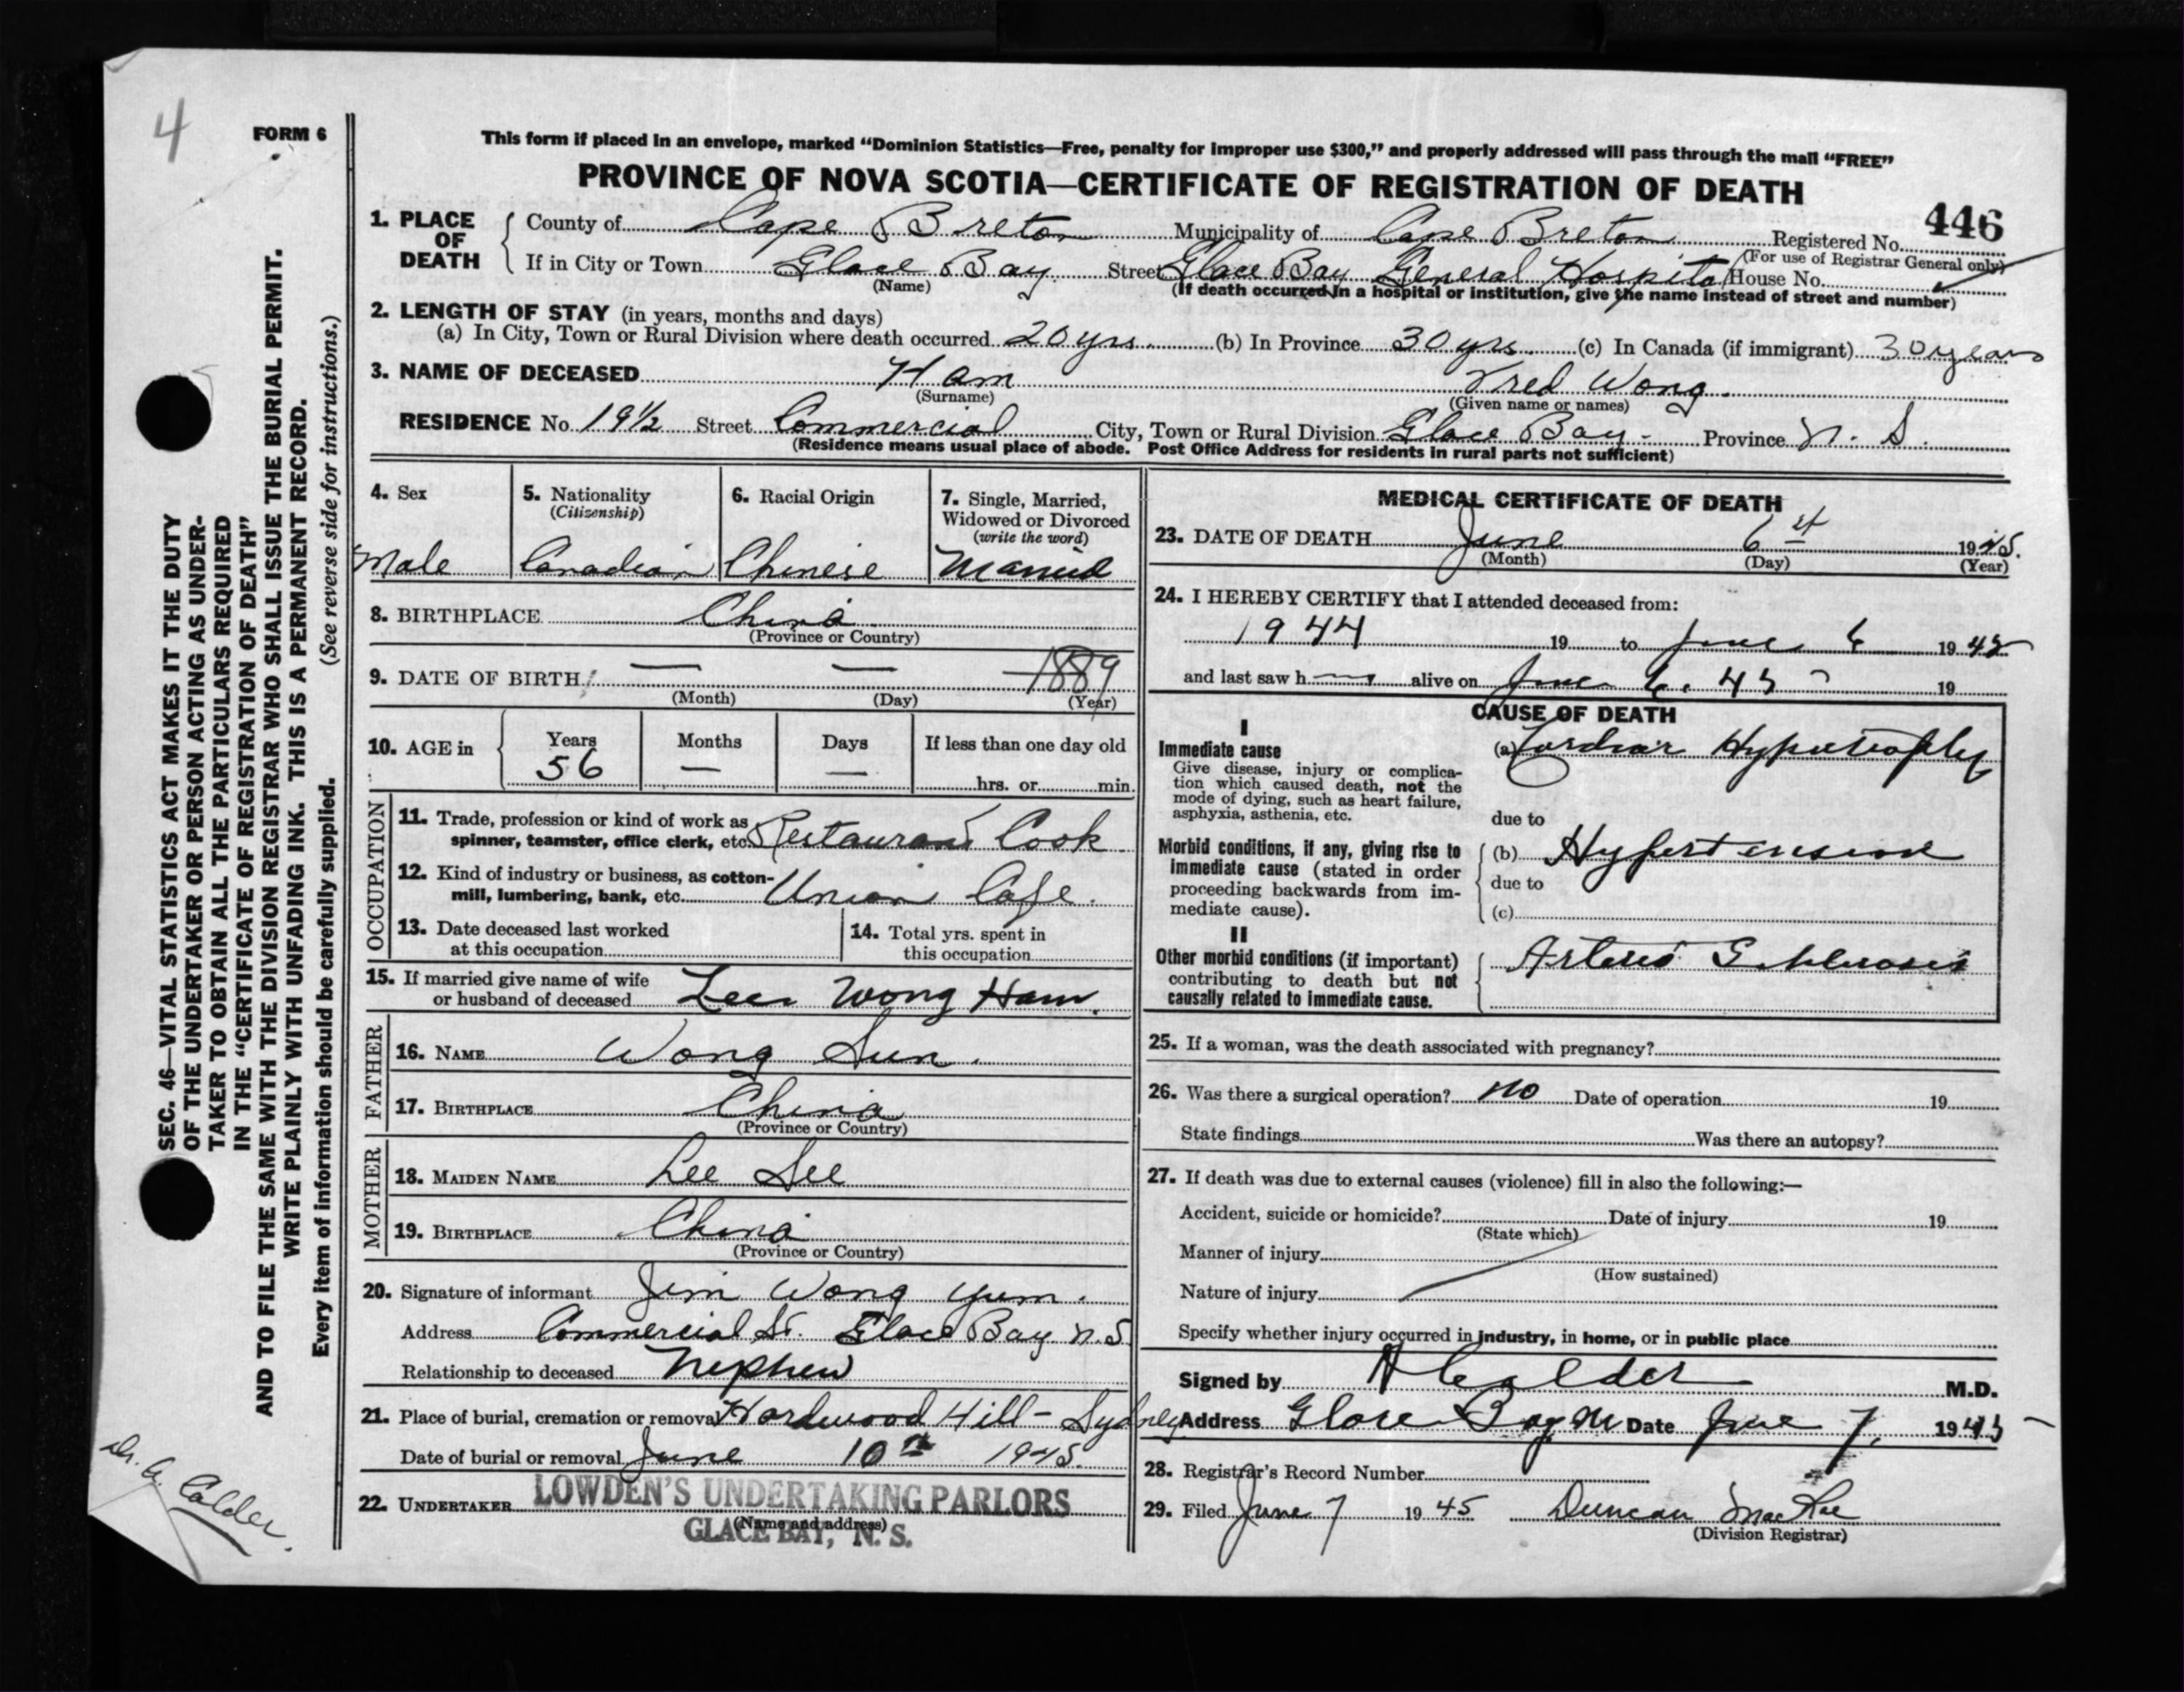 4
FORM 6
This form if placed in an envelope, marked "Dominion Statistics—Free, penalty for improper use $300," and properly addressed will pass through the mail "FREE"
PROVINCE OF NOVA SCOTIA—CERTIFICATE OF REGISTRATION OF DEATH
446
1. PLACE OF DEATH County of Cape Breton Municipality of Cape Breton Registered No.
(For use of Registrar General only)
If in City or Town Glace Bay Street Glace Bay General Hospital House No.
(Name) (If death occurred in a hospital or institution, give the name instead of street and number)
2. LENGTH OF STAY (in years, months and days)
(a) In City, Town or Rural Division where death occurred 20 yrs. (b) In Province 30 yrs. (c) In Canada (if immigrant) 30 years
3. NAME OF DECEASED Ham Fred Wong
(Surname) (Given name or names)
RESIDENCE No. 19½ Street Commercial City, Town or Rural Division Glace Bay Province N. S.
(Residence means usual place of abode. Post Office Address for residents in rural parts not sufficient)
4. Sex
Male
5. Nationality
(Citizenship)
Canadian
6. Racial Origin
Chinese
7. Single, Married,
Widowed or Divorced
(write the word)
Married
8. BIRTHPLACE China
(Province or Country)
9. DATE OF BIRTH — — 1889
(Month) (Day) (Year)
10. AGE in Years Months Days If less than one day old
56 — — hrs. or min.
OCCUPATION
11. Trade, profession or kind of work as
spinner, teamster, office clerk, etc. Restaurant Cook
12. Kind of industry or business, as cotton-
mill, lumbering, bank, etc. Union Cafe.
13. Date deceased last worked
at this occupation
14. Total yrs. spent in
this occupation
15. If married give name of wife
or husband of deceased Lee Wong Ham.
FATHER
16. NAME Wong Sun.
17. BIRTHPLACE China
(Province or Country)
MOTHER
18. MAIDEN NAME Lee See
19. BIRTHPLACE China
(Province or Country)
20. Signature of informant Jim Wong Yum.
Address Commercial St. Glace Bay N.S.
Relationship to deceased Nephew
21. Place of burial, cremation or removal Hardwood Hill - Sydney
Date of burial or removal June 10th 1945.
22. UNDERTAKER LOWDEN'S UNDERTAKING PARLORS
(Name and address)
GLACE BAY, N. S.
MEDICAL CERTIFICATE OF DEATH
23. DATE OF DEATH June 6 1945.
(Month) (Day) (Year)
24. I HEREBY CERTIFY that I attended deceased from:
1944 19 to June 6 1945
and last saw h alive on June 6. 45 19
CAUSE OF DEATH
I
Immediate cause
Give disease, injury or complica-
tion which caused death, not the
mode of dying, such as heart failure,
asphyxia, asthenia, etc.
(a) Cardiac Hypertrophy
due to
Morbid conditions, if any, giving rise to
immediate cause (stated in order
proceeding backwards from im-
mediate cause).
(b) Hypertension
due to
(c)
II
Other morbid conditions (if important)
contributing to death but not
causally related to immediate cause.
Arterio Schlerosis
25. If a woman, was the death associated with pregnancy?
26. Was there a surgical operation? no Date of operation 19
State findings Was there an autopsy?
27. If death was due to external causes (violence) fill in also the following:—
Accident, suicide or homicide? Date of injury 19
(State which)
Manner of injury
(How sustained)
Nature of injury
Specify whether injury occurred in industry, in home, or in public place
Signed by A Calder M.D.
Address Glace Bay NS Date June 7, 1945
28. Registrar's Record Number
29. Filed June 7 1945 Duncan MacRae
(Division Registrar)
SEC. 46—VITAL STATISTICS ACT MAKES IT THE DUTY
OF THE UNDERTAKER OR PERSON ACTING AS UNDER-
TAKER TO OBTAIN ALL THE PARTICULARS REQUIRED
IN THE "CERTIFICATE OF REGISTRATION OF DEATH"
AND TO FILE THE SAME WITH THE DIVISION REGISTRAR WHO SHALL ISSUE THE BURIAL PERMIT.
WRITE PLAINLY WITH UNFADING INK. THIS IS A PERMANENT RECORD.
Every item of information should be carefully supplied. (See reverse side for instructions.)
Dr. A. Calder.